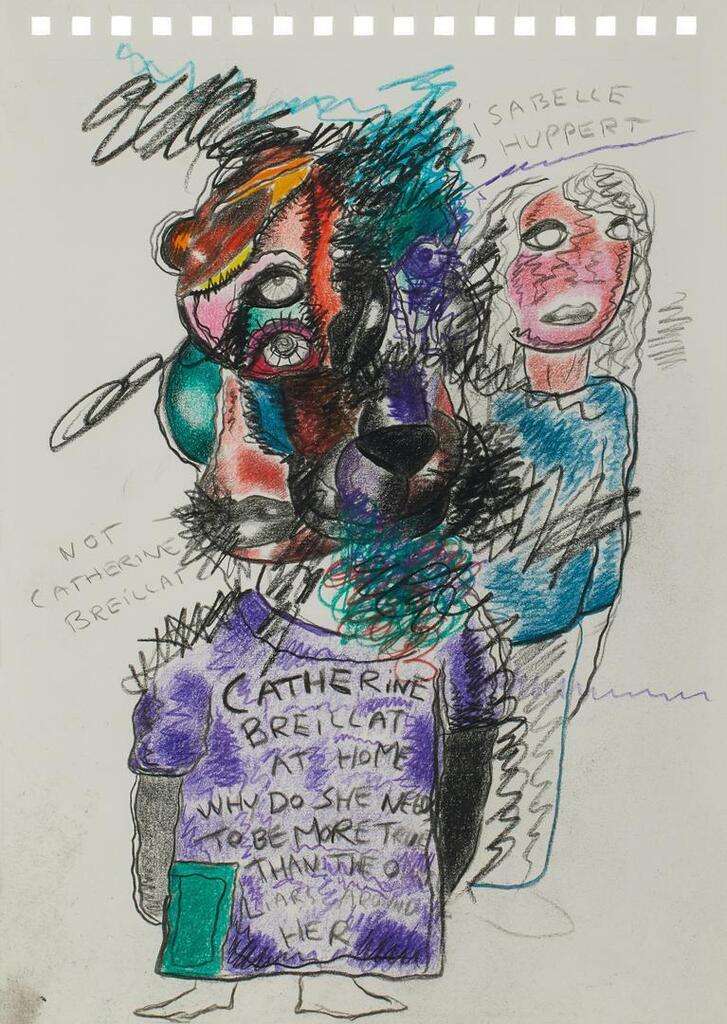 iSABELLE
HUPPERT
NOT
CATHERINE
BREILLAT
CATHERiNE
BREILLAT
AT HOME
WHY DO SHE NEED
TO BE MORE TRUE
THAN THE O
LiARS AROUND
HER